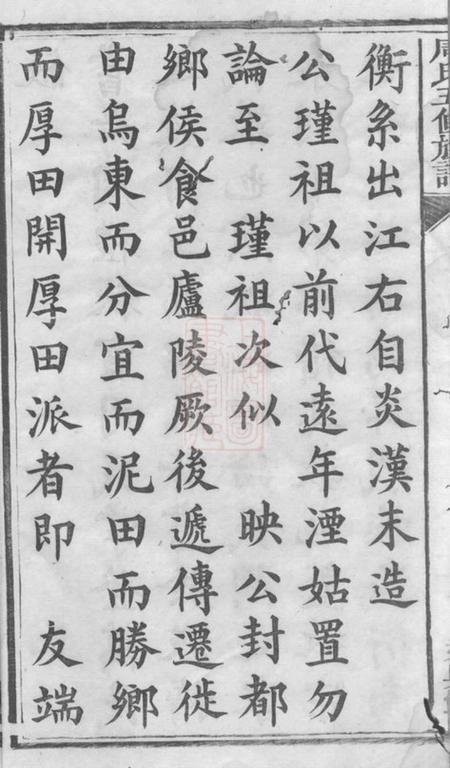 周氏五修族譜
衡系出江右自炎漢末造
公瑾祖以前代遠年湮姑置勿
論至　瑾祖次似　映公封都
鄉侯食邑廬陵厥後遞傳遷徙
由烏東而分宜而泥田而勝鄉
而厚田開厚田派者即　友端